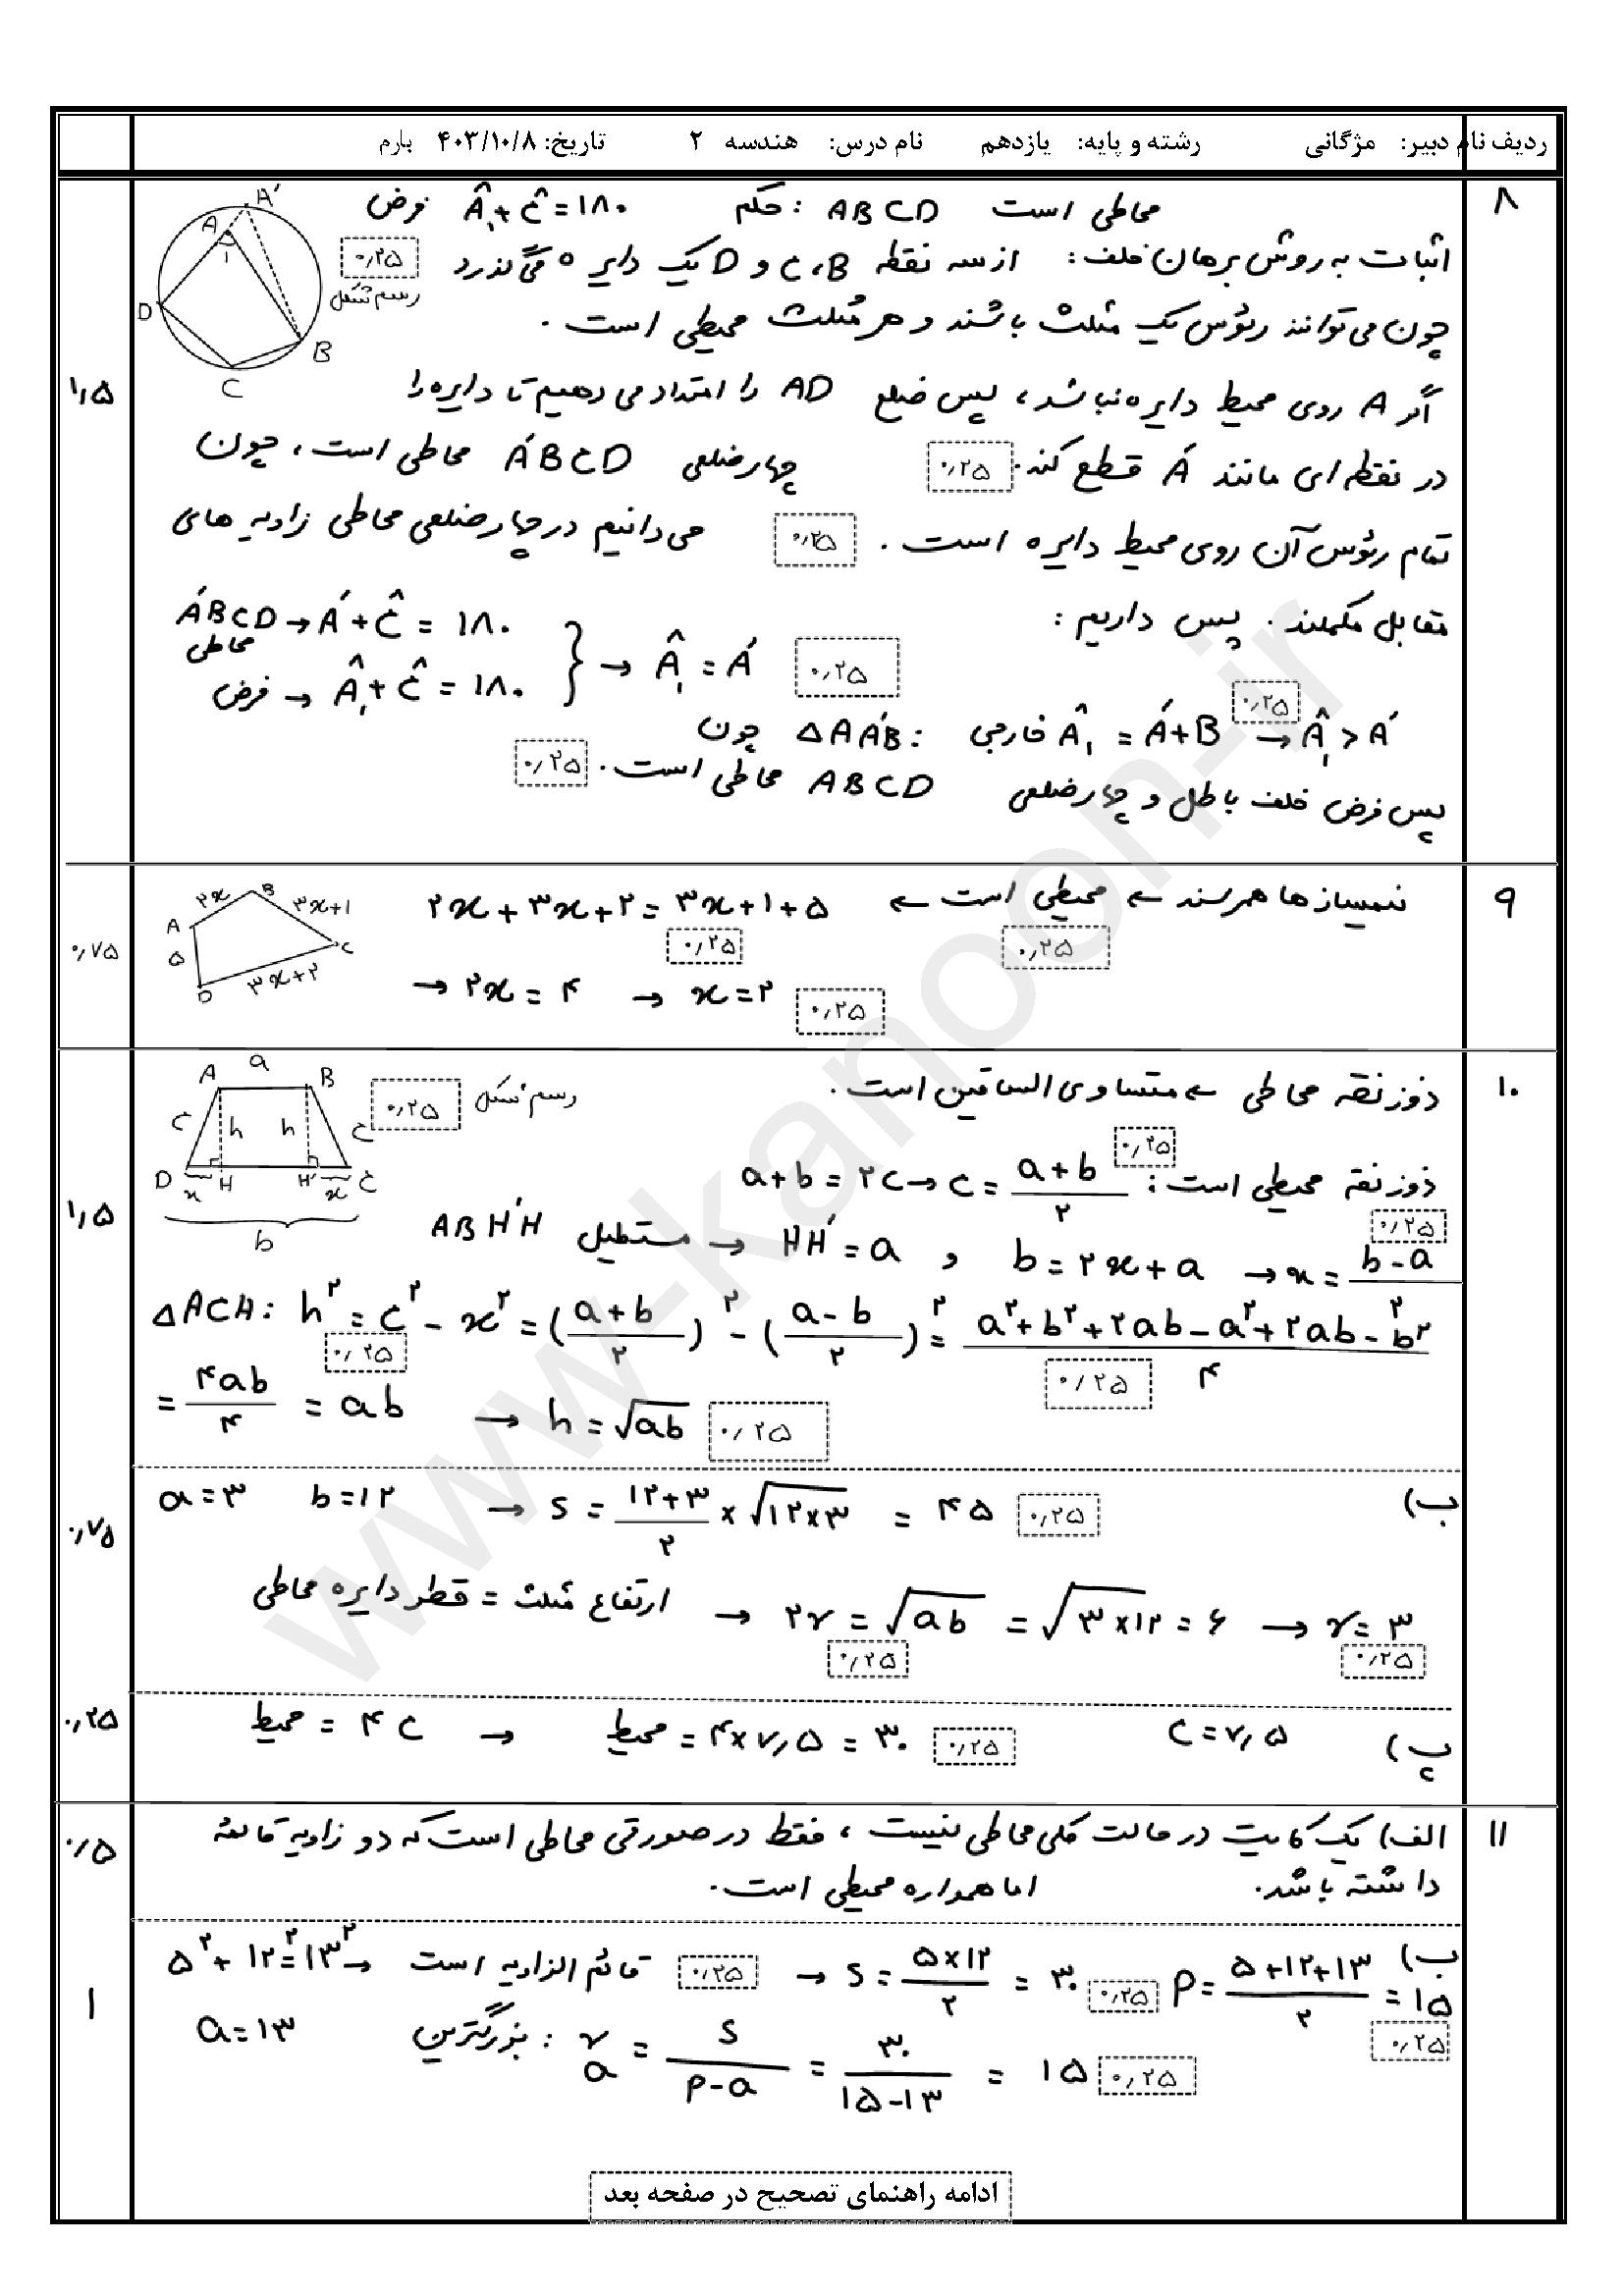 ردیف نام دبیر: مژگانی رشته و پایه: یازدهم نام درس: هندسه ۲ تاریخ: ۴۰۳/۱۰/۸ بارم
۸
فرض Â₁+Ĉ=۱۸۰ حکم: ABCD محاطی است
اثبات به روش برهان خلف: از سه نقطه B، C و D یک دایره می‌گذرد
۰٫۲۵ رسم شکل
چون می‌توانند رئوس یک مثلث باشند و هر مثلث محیطی است.
۱٫۵
اگر A روی محیط دایره نباشد، پس ضلع AD را امتداد می دهیم تا دایره را
در نقطه ای مانند A′ قطع کند. ۰٫۲۵ چهارضلعی A′BCD محاطی است، چون
تمام رئوس آن روی محیط دایره است. ۰٫۲۵ می‌دانیم در چهارضلعی محاطی زاویه های
مقابل مکملند. پس داریم:
A′BCD محاطی → A′+Ĉ = ۱۸۰
فرض → Â₁+Ĉ = ۱۸۰ } → Â₁ = A′ ۰٫۲۵
چون △AA′B: خارجی Â₁ = A′+B → Â₁ > A′ ۰٫۲۵
پس فرض خلف باطل و چهارضلعی ABCD محاطی است. ۰٫۲۵
A A′ ۱ B C D
۹
۰٫۷۵
نیمسازها همرسند ← محیطی است ← ۰٫۲۵
۲x + ۳x + ۲ = ۳x + ۱ + ۵ ۰٫۲۵
→ ۲x = ۴ → x = ۲ ۰٫۲۵
A B C D ۲x ۳x+۱ ۵ ۳x+۲
۱۰
ذوزنقه محاطی ← متساوی الساقین است.
رسم شکل ۰٫۲۵
A a B C h h C D x H H′ x C b
۱٫۵
ذوزنقه محیطی است: a+b = ۲C → C = (a+b)/۲ ۰٫۲۵
ABH′H مستطیل → HH′ = a و b = ۲x + a → x = (b-a)/۲ ۰٫۲۵
△ACH: h² = C² - x² = ((a+b)/۲)² - ((a-b)/۲)² = (a²+b²+۲ab-a²+۲ab-b²)/۴ ۰٫۲۵ ۰٫۲۵
= ۴ab/۴ = ab → h = √ab ۰٫۲۵
ب)
۰٫۷۵
a = ۳ b = ۱۲ → S = (۱۲+۳)/۲ × √۱۲×۳ = ۴۵ ۰٫۲۵
ارتفاع مثلث = قطر دایره محاطی → ۲r = √ab = √۳×۱۲ = ۶ → r = ۳ ۰٫۲۵ ۰٫۲۵
پ)
۰٫۲۵
C = ۷٫۵ محیط = ۴C → محیط = ۴×۷٫۵ = ۳۰ ۰٫۲۵
۱۱
۰٫۵
الف) یک کایت در حالت کلی محاطی نیست، فقط در صورتی محاطی است که دو زاویه قائمه
داشته باشد. اما همواره محیطی است.
ب)
۱
۵² + ۱۲² = ۱۳² → قائم الزاویه است ۰٫۲۵ → S = (۵×۱۲)/۲ = ۳۰ ۰٫۲۵ P = (۵+۱۲+۱۳)/۲ = ۱۵ ۰٫۲۵
a = ۱۳ بزرگترین: rₐ = S/(P-a) = ۳۰/(۱۵-۱۳) = ۱۵ ۰٫۲۵
ادامه راهنمای تصحیح در صفحه بعد
www-kanoon-ir